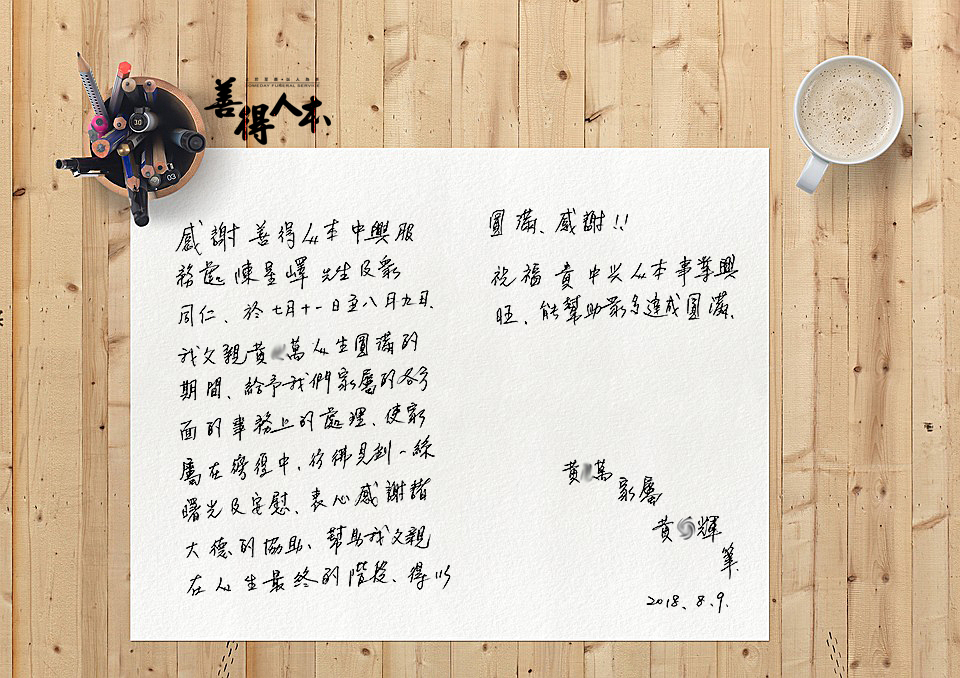 善得人本
SOMEDAY FUNERAL SERVICE
感謝善得人本中興服
務處陳星嶧先生及眾
同仁、於七月十一日至八月九日、
我父親黃萬人生圓滿的
期間、給予我們家屬的各方
面的事務上的處理、使家
屬在徬徨中、彷彿見到一絲
曙光及安慰、衷心感謝諸
大德的協助、幫助我父親
在人生最終的階段、得以
圓滿、感謝!!
祝福貴中興人本事業興
旺、能幫助眾多達成圓滿、
黃萬
家屬
黃輝
筆
2018、8、9、
30
03